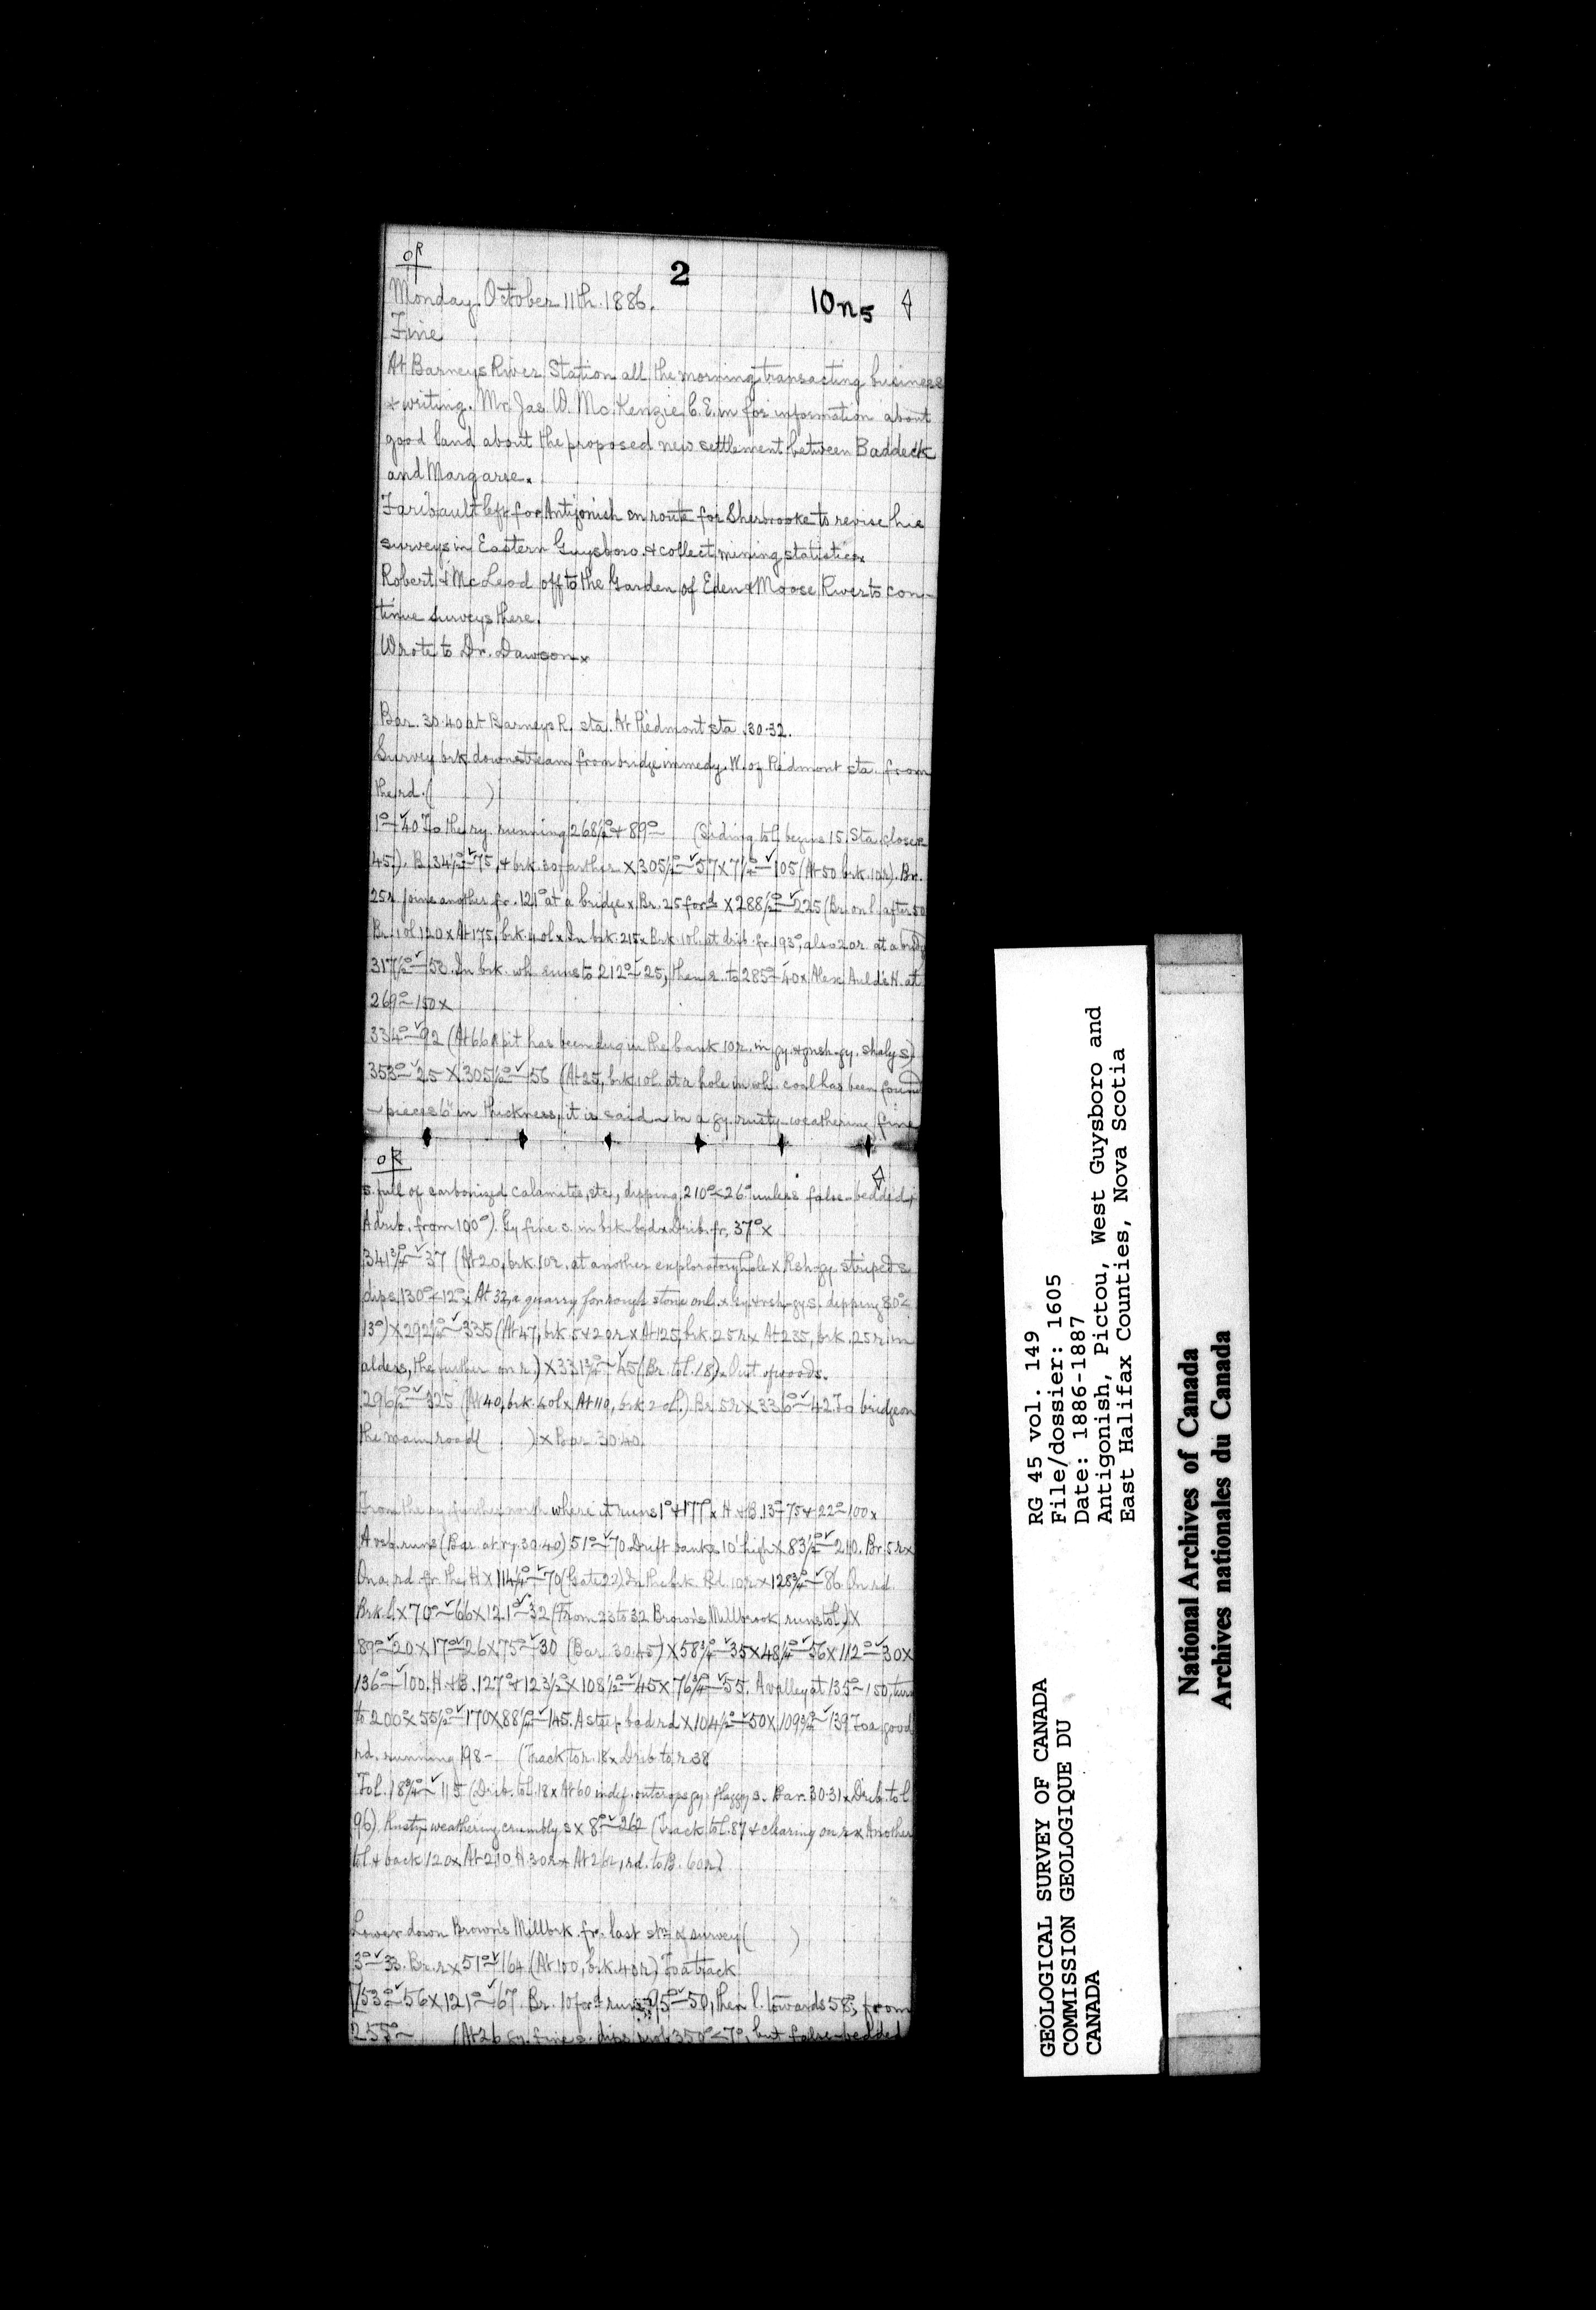 OR
2
Monday October 11th. 1886.
10n5
Fine
At Barneys River Station all the morning transacting business
& writing. Mr. Jas. W. McKenzie C.E. in for information about
good land about the proposed new settlement between Baddeck
and Margaree.
Faribault left for Antigonish en route for Sherbrooke to revise his
surveys in Eastern Guysboro. & collect mining statistics.
Robert & McLeod off to the Garden of Eden & Moose River to con-
tinue surveys there.
Wrote to Dr. Dawson x
Bar. 30.40 at Barneys R. sta. At Piedmont sta. 30.32.
Survey brk downstream from bridge immedy. W. of Piedmont sta. from
the rd. ( )
1°–40 To the ry. running 268½° & 89°– (Siding to l. begins 15. Sta. close r.
45). B. 34½°–75, & brk. 30 farther x 305½°–57 x 7½°–105 (At 50 brk. 10r). Br.
25r joins another fr. 121° at a bridge x Br. 25 ford x 288½°–225 (Br. on l. after 50
Br. 10l. 120 x At 175, brk. 40l x In brk. 215 x Brk. 10l. at drib. fr. 193°, also 20r. at a
317½°–58. In brk. wh. runs to 212°–25, then r. to 285°–40 x Alex Auld's H. at
269°–150 x
334°–92 (At 66 A pit has been dug in the bank 10r. in gy. & gnsh-gy. shaly s)
353°–25 x 305½°–56 (At 25, brk. 10l. at a hole in wh. coal has been found
– pieces 6" in thickness, it is said – in a gy. rusty-weathering, fine
OR
s. full of carbonized calamites, etc., dipping 210°<26° unless false-bedded;
A drib. from 100°). Gy fine s. in brk-bed x Drib. fr. 37° x
341¾°–37 (At 20, brk. 10r. at another exploratory hole x Rsh-gy. striped s.
dips 130°<12° x At 32, a quarry for rough stone on l. x Gy. & rsh-gy s. dipping 80°<
13°) x 292½°–335 (At 47, brk. 5 & 20r x At 125, brk. 25r x At 235, brk. 25r in
alders, the further on r.) x 331½°–45 (Br. to l. 18) x Out of woods.
296½°–325 (At 40, brk. 40l x At 110, brk 20l.) Br. 5r x 336°–42. To bridge on
the main road ( ) x Bar 30.40.
From the ry. further north where it runs 1° & 177° x H & B. 13°–75 & 22°–100 x
A vab. runs (Bar. at ry. 30.40) 51°–70. Drift banks 10' high x 83½°–210. Br. 5r x
On a rd. fr. the H x 114½°–70 (Gate 22) In the brk. Rd. 10r x 128¾°–86. On rd.
Brk. l. x 70°–66 x 121°–32 (From 23 to 32 Brown's Millbrook runs to l.) x
89°–20 x 17°–26 x 75°–30 (Bar. 30.45) x 58¾°–35 x 48¼°–56 x 112°–30 x
136°–100. H & B. 127° & 123½° x 108½°–45 x 76¾°–55. A valley at 135°–150, turns
to 200° x 55½°–170 x 88¼°–145. A steep bad rd x 104½°–50 x 109¾°–139 To a good
rd. running 198– (Track to r. 18 x Drib to r. 38
To l. 18¾°–115 (Drib. to l. 18 x At 60 indef. outcrops gy. flaggy s. Bar. 30.31 x Drib. to l.
96) Rusty weathering crumbly s x 8°–262 (Track to l. 87 & clearing on r x Another
to l & back 120 x At 210 H. 30r x At 262, rd. to B. 60r)
Lower down Brown's Millbrk. fr. last stn of survey ( )
3°–33. Br. r x 51°–164 (At 100, brk. 40r) To a track
53°–56 x 121°–67. Br. 10 ford runs 95°–50, then l. towards 58°, from
255°– (At 26 gy. fine s. dips prob 350°<7°, but false-bedded
RG 45 vol. 149
File/dossier: 1605
Date: 1886-1887
Antigonish, Pictou, West Guysboro and
East Halifax Counties, Nova Scotia
GEOLOGICAL SURVEY OF CANADA
COMMISSION GEOLOGIQUE DU
CANADA
National Archives of Canada
Archives nationales du Canada